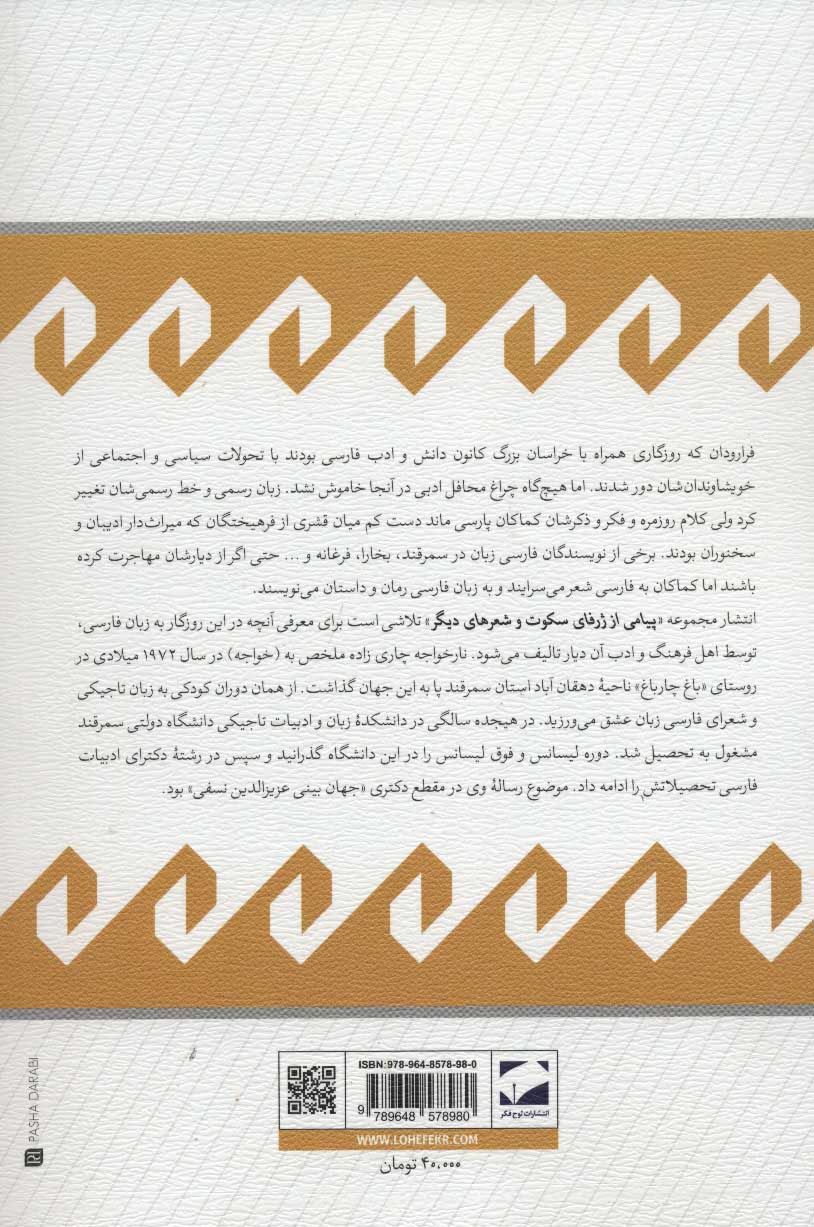 فرارودان که روزگاری همراه با خراسان بزرگ کانون دانش و ادب فارسی بودند با تحولات سیاسی و اجتماعی از
خویشاوندان‌شان دور شدند. اما هیچ‌گاه چراغ محافل ادبی در آنجا خاموش نشد. زبان رسمی و خط رسمی‌شان تغییر
کرد ولی کلام روزمره و فکر و ذکرشان کماکان پارسی ماند دست کم میان قشری از فرهیختگان که میراث‌دار ادیبان و
سخنوران بودند. برخی از نویسندگان فارسی زبان در سمرقند، بخارا، فرغانه و ... حتی اگر از دیارشان مهاجرت کرده
باشند اما کماکان به فارسی شعر می‌سرایند و به زبان فارسی رمان و داستان می‌نویسند.
انتشار مجموعه «پیامی از ژرفای سکوت و شعرهای دیگر» تلاشی است برای معرفی آنچه در این روزگار به زبان فارسی،
توسط اهل فرهنگ و ادب آن دیار تالیف می‌شود. نارخواجه چاری زاده ملخص به (خواجه) در سال ۱۹۷۲ میلادی در
روستای «باغ چارباغ» ناحیهٔ دهقان آباد استان سمرقند پا به این جهان گذاشت. از همان دوران کودکی به زبان تاجیکی
و شعرای فارسی زبان عشق می‌ورزید. در هیجده سالگی در دانشکدهٔ زبان و ادبیات تاجیکی دانشگاه دولتی سمرقند
مشغول به تحصیل شد. دوره لیسانس و فوق لیسانس را در این دانشگاه گذرانید و سپس در رشتهٔ دکترای ادبیات
فارسی تحصیلاتش را ادامه داد. موضوع رسالهٔ وی در مقطع دکتری «جهان بینی عزیزالدین نسفی» بود.
ISBN:978-964-8578-98-0
9 789648 578980
انتشارات لوح فکر
WWW.LOHEFEKR.COM
۴۰،۰۰۰ تومان
PASHA DARABI